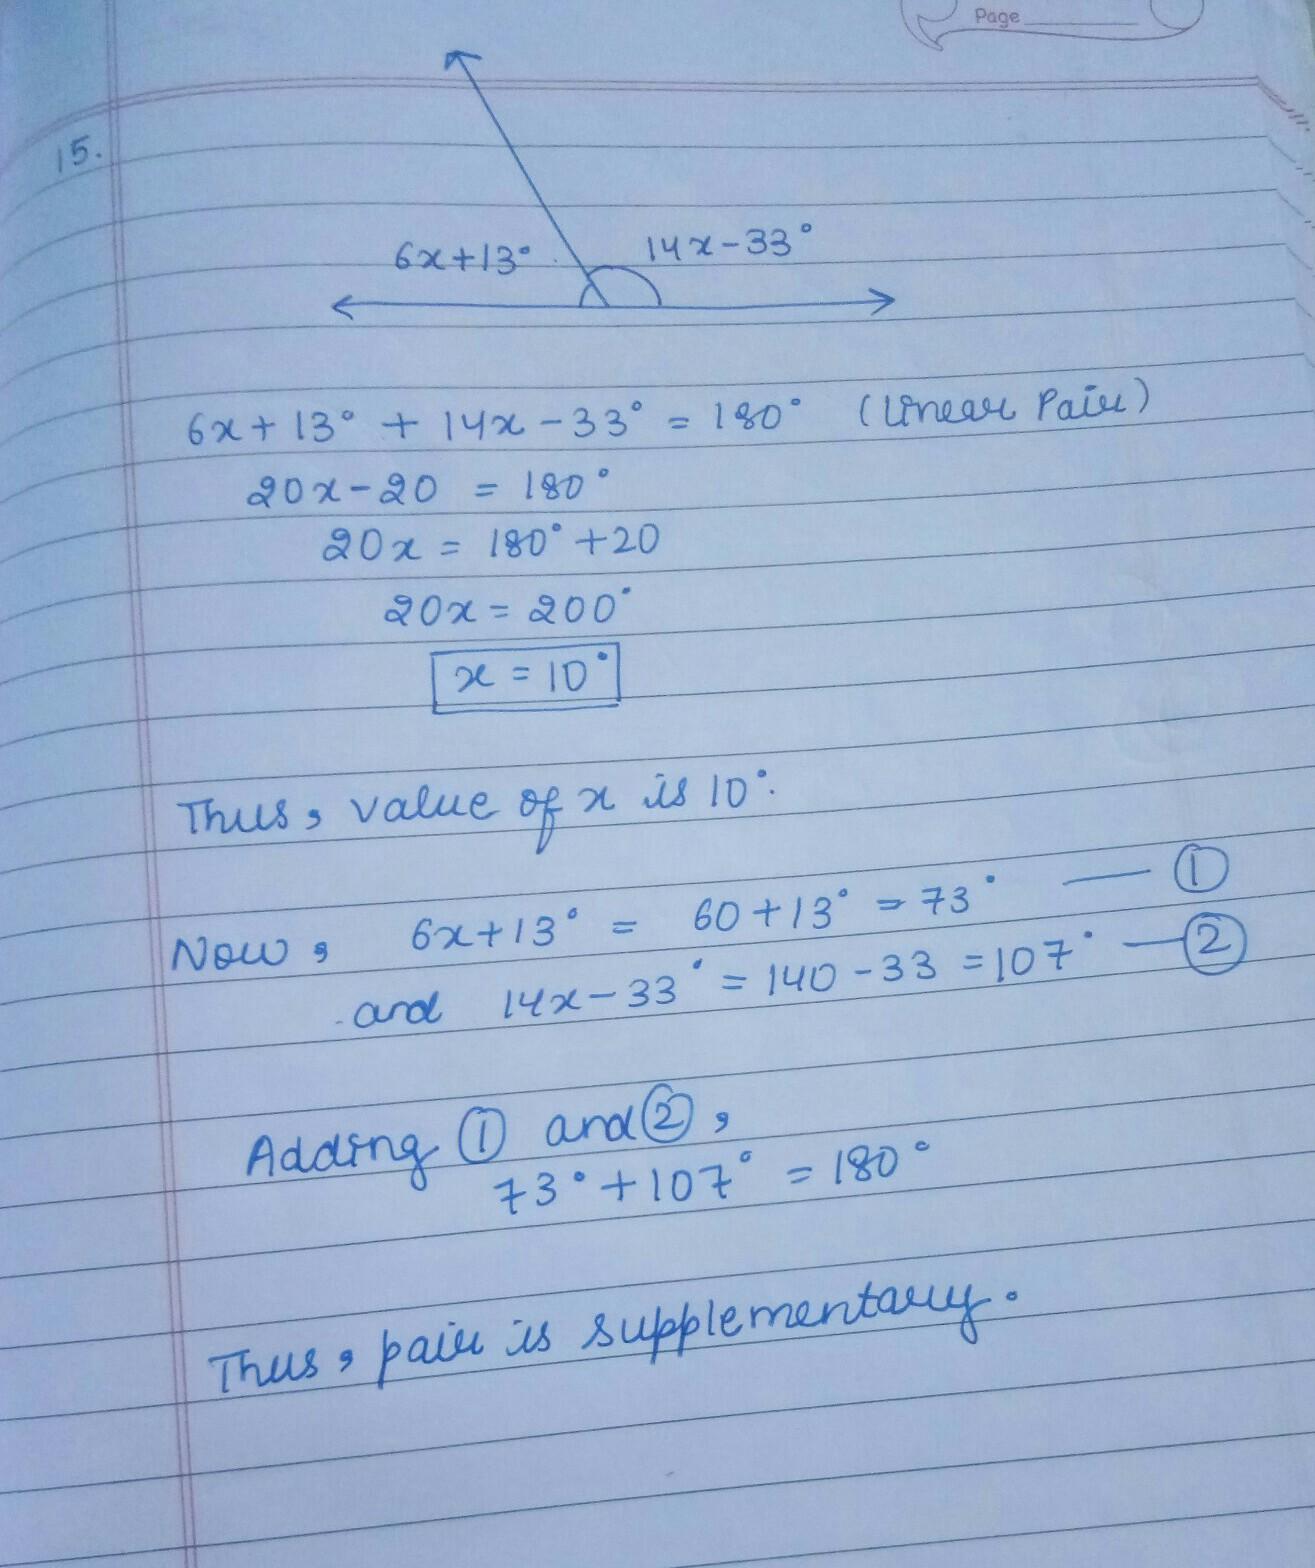 Page
15.
6x+13° 14x-33°
6x+13° + 14x-33° = 180° (Linear Pair)
20x-20 = 180°
20x = 180°+20
20x = 200°
x = 10°
Thus, value of x is 10°.
Now, 6x+13° = 60+13° = 73° — ①
and 14x-33° = 140-33 = 107° — ②
Adding ① and ②,
73°+107° = 180°
Thus, pair is supplementary.